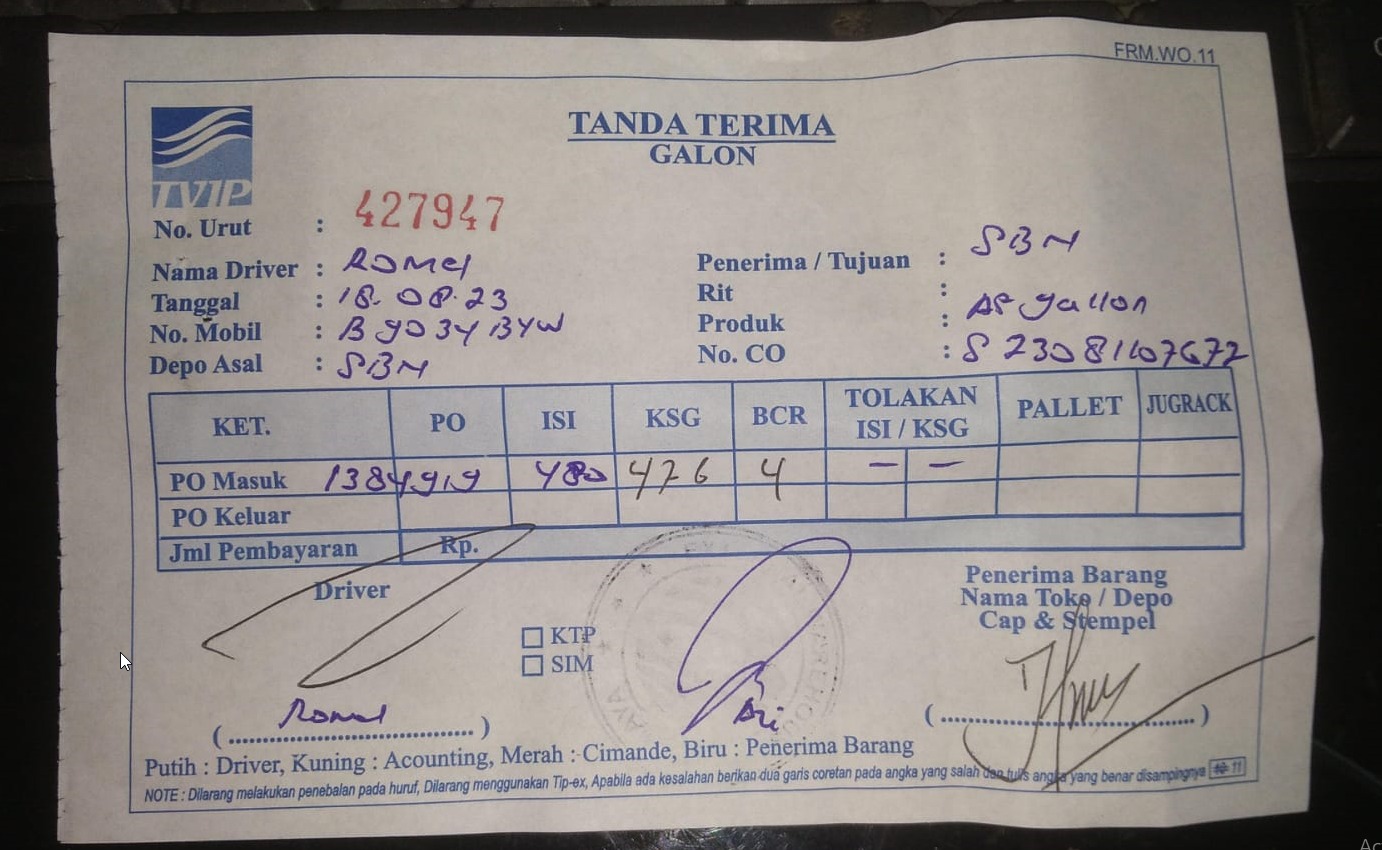 FRM.WO.11
TANDA TERIMA
GALON
TVIP
No. Urut : 427947
Nama Driver : Romel
Tanggal : 18.08.23
No. Mobil : B 9034 BYW
Depo Asal : SBN
Penerima / Tujuan : SBN
Rit :
Produk : AP gallon
No. CO :
KET. PO ISI KSG BCR TOLAKAN ISI / KSG PALLET JUGRACK
PO Masuk 1384919 480 476 4 — —
PO Keluar
Jml Pembayaran Rp.
Driver
Penerima Barang
Nama Toko / Depo
Cap & Stempel
KTP
SIM
(Romel)
Ari
(..............................)
Putih : Driver, Kuning : Acounting, Merah : Cimande, Biru : Penerima Barang
NOTE : Dilarang melakukan penebalan pada huruf, Dilarang menggunakan Tip-ex, Apabila ada kesalahan berikan dua garis coretan pada angka yang salah dan tulis angka yang benar disampingnya 10 11